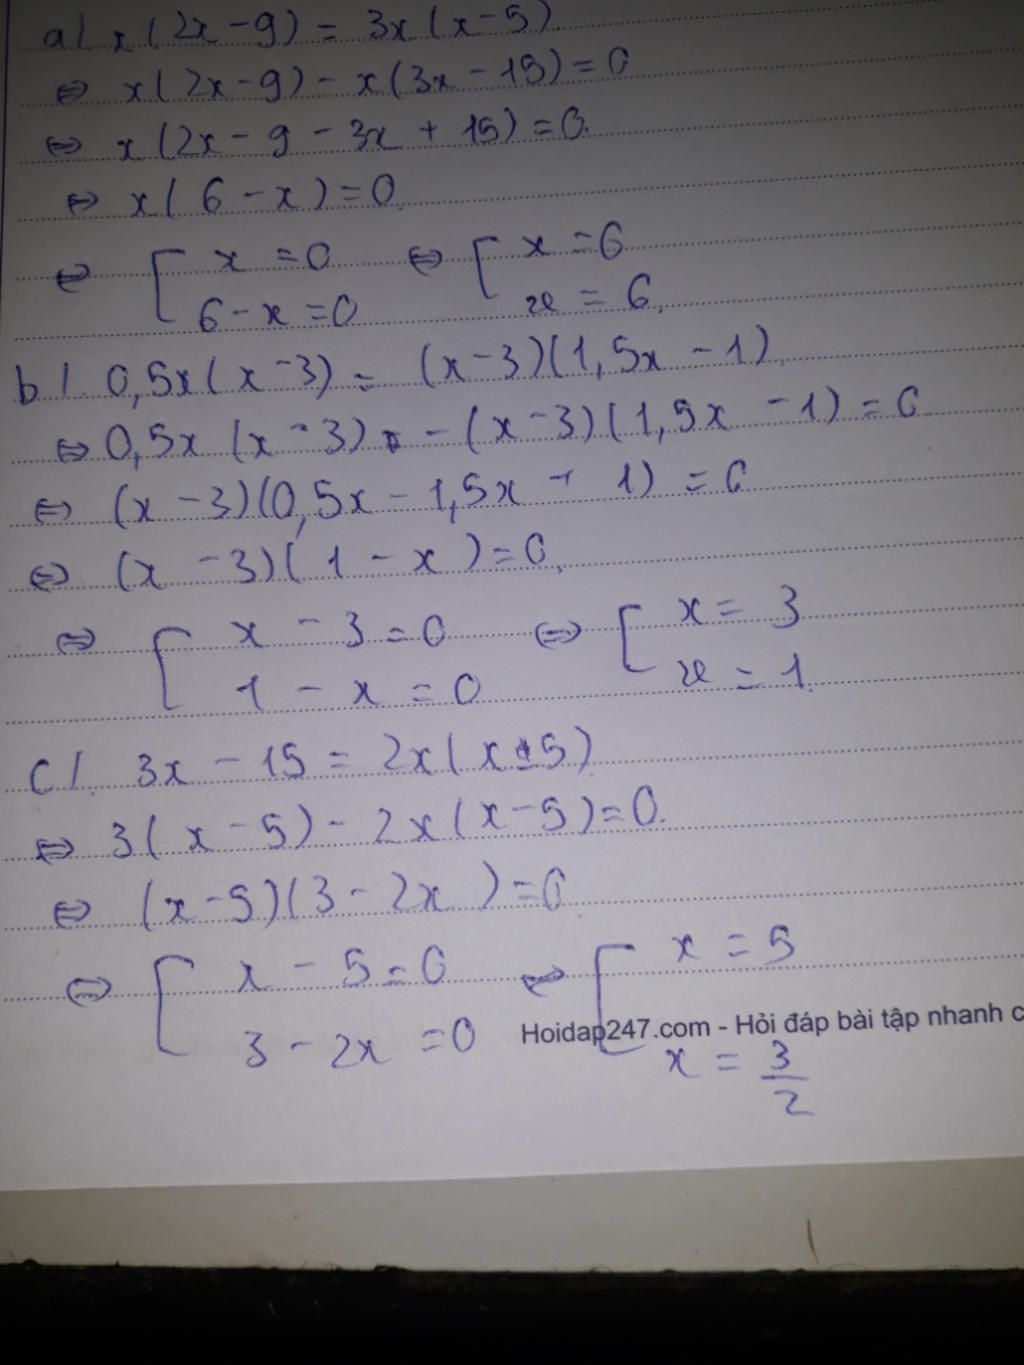 a/. x(2x-9) = 3x(x-5).
⇔ x(2x-9) - x(3x-15) = 0
⇔ x(2x - 9 - 3x + 15) = 0.
⇔ x(6 - x) = 0.
⇔ [ x = 0 ⇔ [ x = 6
6 - x = 0 x = 6.
b/. 0,5x(x-3) = (x-3)(1,5x-1).
⇔ 0,5x(x-3) - (x-3)(1,5x-1) = 0
⇔ (x-3)(0,5x-1,5x + 1) = 0
⇔ (x-3)(1-x) = 0.
⇔ [ x - 3 = 0 ⇔ [ x = 3
1 - x = 0 x = 1.
c/. 3x - 15 = 2x(x-5)
⇔ 3(x-5) - 2x(x-5) = 0.
⇔ (x-5)(3-2x) = 0
⇔ [ x - 5 = 0 ⇔ [ x = 5
3 - 2x = 0 x = 3/2
Hoidap247.com - Hỏi đáp bài tập nhanh c